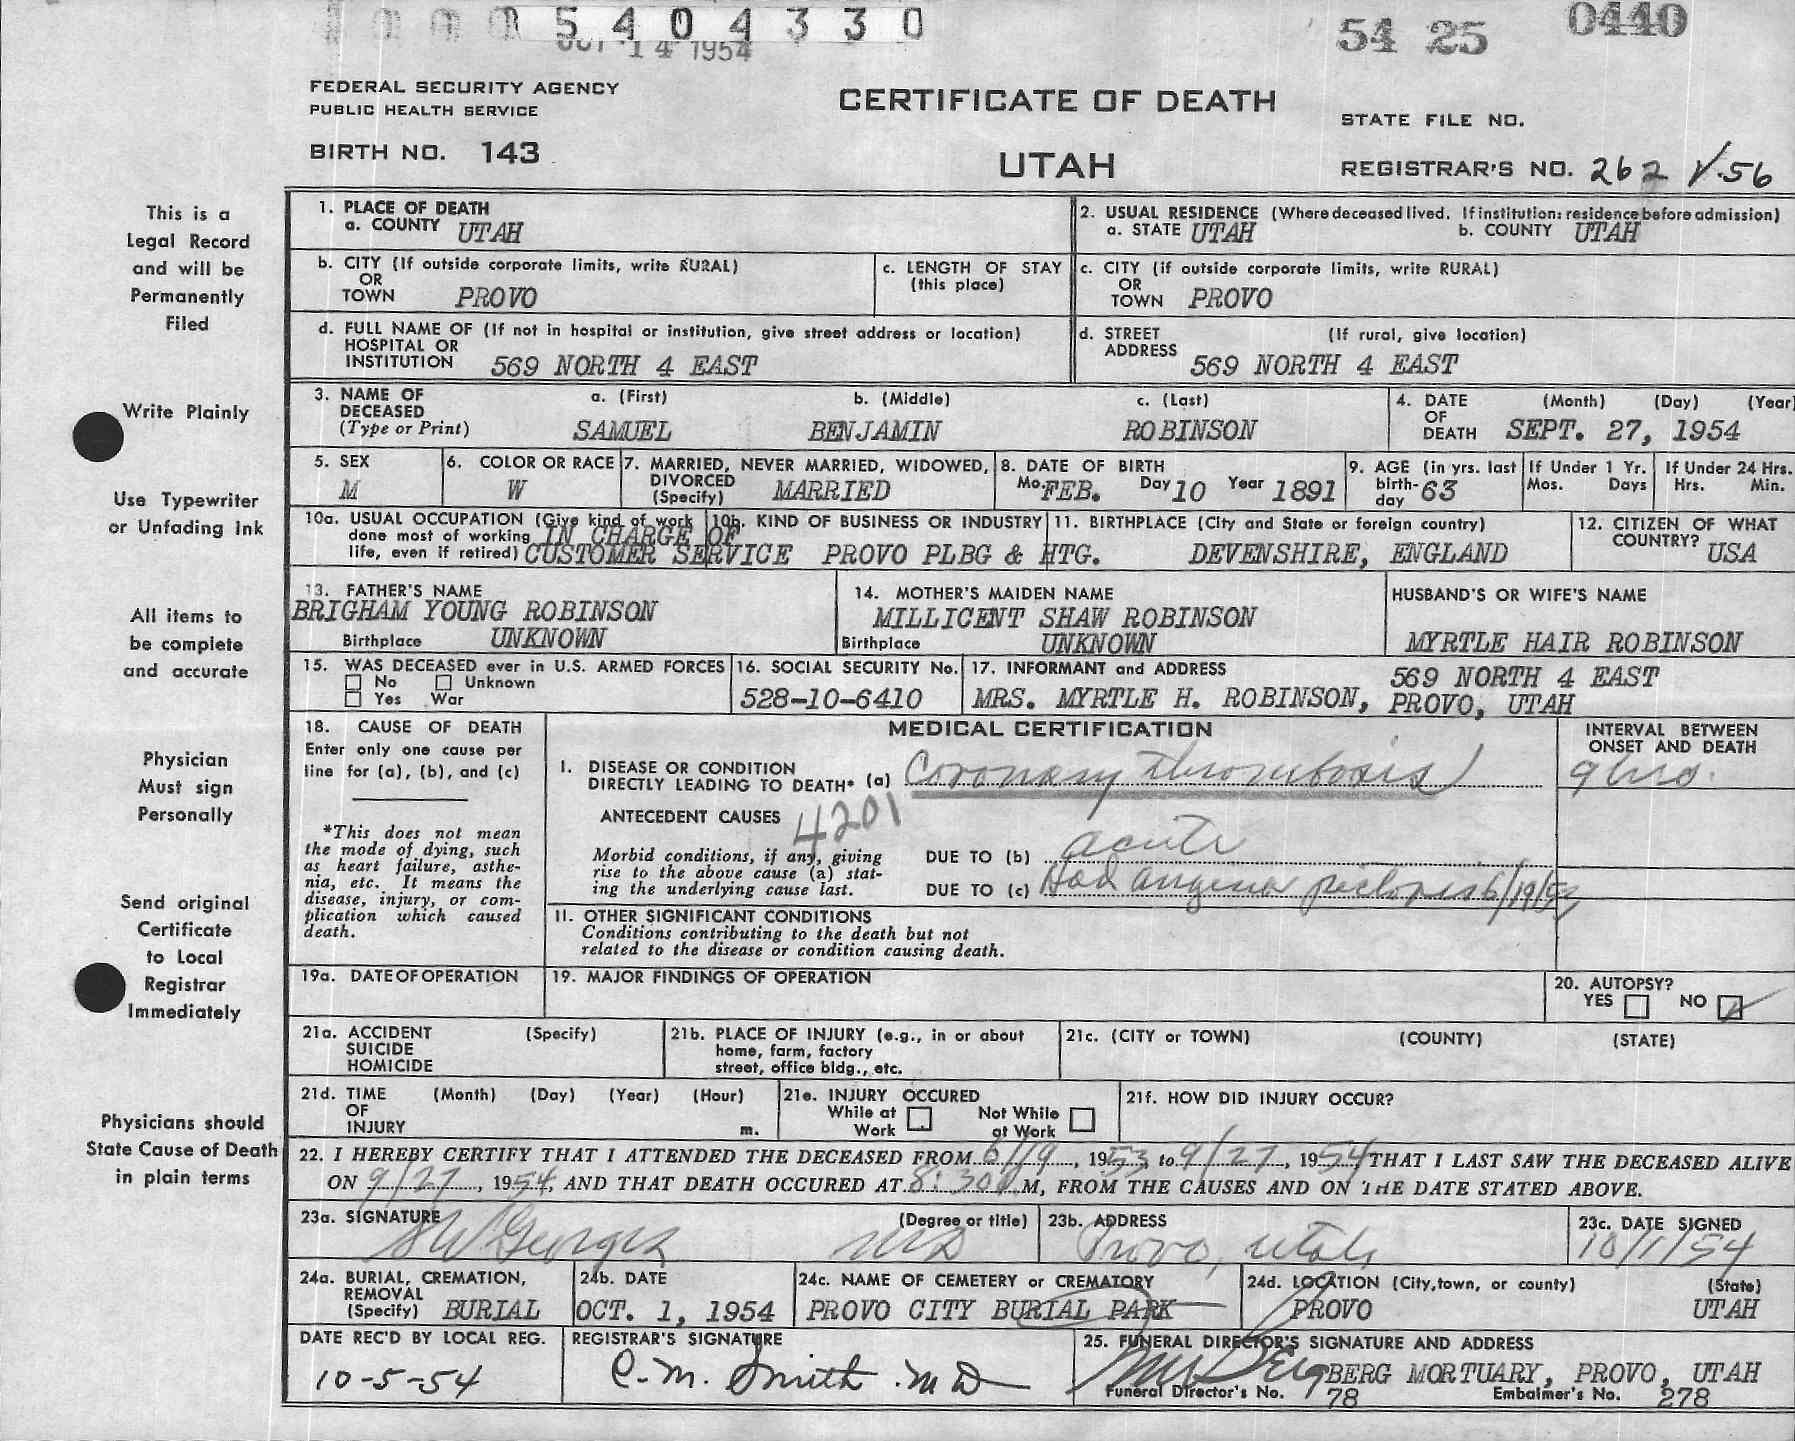 5404330
OCT 14 1954
54 25 0440
FEDERAL SECURITY AGENCY
PUBLIC HEALTH SERVICE
BIRTH NO. 143
CERTIFICATE OF DEATH
UTAH
STATE FILE NO.
REGISTRAR'S NO. 262 V.56
This is a
Legal Record
and will be
Permanently
Filed
Write Plainly
Use Typewriter
or Unfading Ink
All items to
be complete
and accurate
Physician
Must sign
Personally
Send original
Certificate
to Local
Registrar
Immediately
Physicians should
State Cause of Death
in plain terms
1. PLACE OF DEATH
a. COUNTY UTAH
2. USUAL RESIDENCE (Where deceased lived. If institution: residence before admission)
a. STATE UTAH b. COUNTY UTAH
b. CITY (If outside corporate limits, write RURAL)
OR
TOWN PROVO
c. LENGTH OF STAY
(this place)
c. CITY (if outside corporate limits, write RURAL)
OR
TOWN PROVO
d. FULL NAME OF (If not in hospital or institution, give street address or location)
HOSPITAL OR
INSTITUTION 569 NORTH 4 EAST
d. STREET (If rural, give location)
ADDRESS 569 NORTH 4 EAST
3. NAME OF a. (First) b. (Middle) c. (Last)
DECEASED
(Type or Print) SAMUEL BENJAMIN ROBINSON
4. DATE (Month) (Day) (Year)
OF
DEATH SEPT. 27, 1954
5. SEX
M
6. COLOR OR RACE
W
7. MARRIED, NEVER MARRIED, WIDOWED,
DIVORCED
(Specify) MARRIED
8. DATE OF BIRTH
Mo. FEB. Day 10 Year 1891
9. AGE (in yrs. last
birth-
day 63
If Under 1 Yr.
Mos. Days
If Under 24 Hrs.
Hrs. Min.
10a. USUAL OCCUPATION (Give kind of work
done most of working IN CHARGE OF
life, even if retired) CUSTOMER SERVICE
10b. KIND OF BUSINESS OR INDUSTRY
PROVO PLBG & HTG.
11. BIRTHPLACE (City and State or foreign country)
DEVENSHIRE, ENGLAND
12. CITIZEN OF WHAT
COUNTRY? USA
13. FATHER'S NAME
BRIGHAM YOUNG ROBINSON
Birthplace UNKNOWN
14. MOTHER'S MAIDEN NAME
MILLICENT SHAW ROBINSON
Birthplace UNKNOWN
HUSBAND'S OR WIFE'S NAME
MYRTLE HAIR ROBINSON
15. WAS DECEASED ever in U.S. ARMED FORCES
No Unknown
Yes War
16. SOCIAL SECURITY No.
528-10-6410
17. INFORMANT and ADDRESS 569 NORTH 4 EAST
MRS. MYRTLE H. ROBINSON, PROVO, UTAH
18. CAUSE OF DEATH
Enter only one cause per
line for (a), (b), and (c)
*This does not mean
the mode of dying, such
as heart failure, asthe-
nia, etc. It means the
disease, injury, or com-
plication which caused
death.
MEDICAL CERTIFICATION
I. DISEASE OR CONDITION
DIRECTLY LEADING TO DEATH* (a) Coronary Thrombosis
INTERVAL BETWEEN
ONSET AND DEATH
9 hrs.
ANTECEDENT CAUSES 4201
Morbid conditions, if any, giving
rise to the above cause (a) stat-
ing the underlying cause last.
DUE TO (b) acute
DUE TO (c) Had angina pectoris 6/19/53
II. OTHER SIGNIFICANT CONDITIONS
Conditions contributing to the death but not
related to the disease or condition causing death.
19a. DATE OF OPERATION
19. MAJOR FINDINGS OF OPERATION
20. AUTOPSY?
YES NO
21a. ACCIDENT (Specify)
SUICIDE
HOMICIDE
21b. PLACE OF INJURY (e.g., in or about
home, farm, factory
street, office bldg., etc.
21c. (CITY or TOWN) (COUNTY) (STATE)
21d. TIME (Month) (Day) (Year) (Hour)
OF
INJURY m.
21e. INJURY OCCURED
While at Not While
Work at Work
21f. HOW DID INJURY OCCUR?
22. I HEREBY CERTIFY THAT I ATTENDED THE DECEASED FROM 6/19, 1953, to 9/27, 1954, THAT I LAST SAW THE DECEASED ALIVE
ON 9/27, 1954, AND THAT DEATH OCCURED AT 8:30 M, FROM THE CAUSES AND ON THE DATE STATED ABOVE.
23a. SIGNATURE (Degree or title)
SW Georges MD
23b. ADDRESS
Provo, Utah
23c. DATE SIGNED
10/1/54
24a. BURIAL, CREMATION,
REMOVAL
(Specify) BURIAL
24b. DATE
OCT. 1, 1954
24c. NAME OF CEMETERY or CREMATORY
PROVO CITY BURIAL PARK
24d. LOCATION (City, town, or county) (State)
PROVO UTAH
DATE REC'D BY LOCAL REG.
10-5-54
REGISTRAR'S SIGNATURE
C. M. Smith MD
25. FUNERAL DIRECTOR'S SIGNATURE AND ADDRESS
BERG MORTUARY, PROVO, UTAH
Funeral Director's No. 978 Embalmer's No. 278